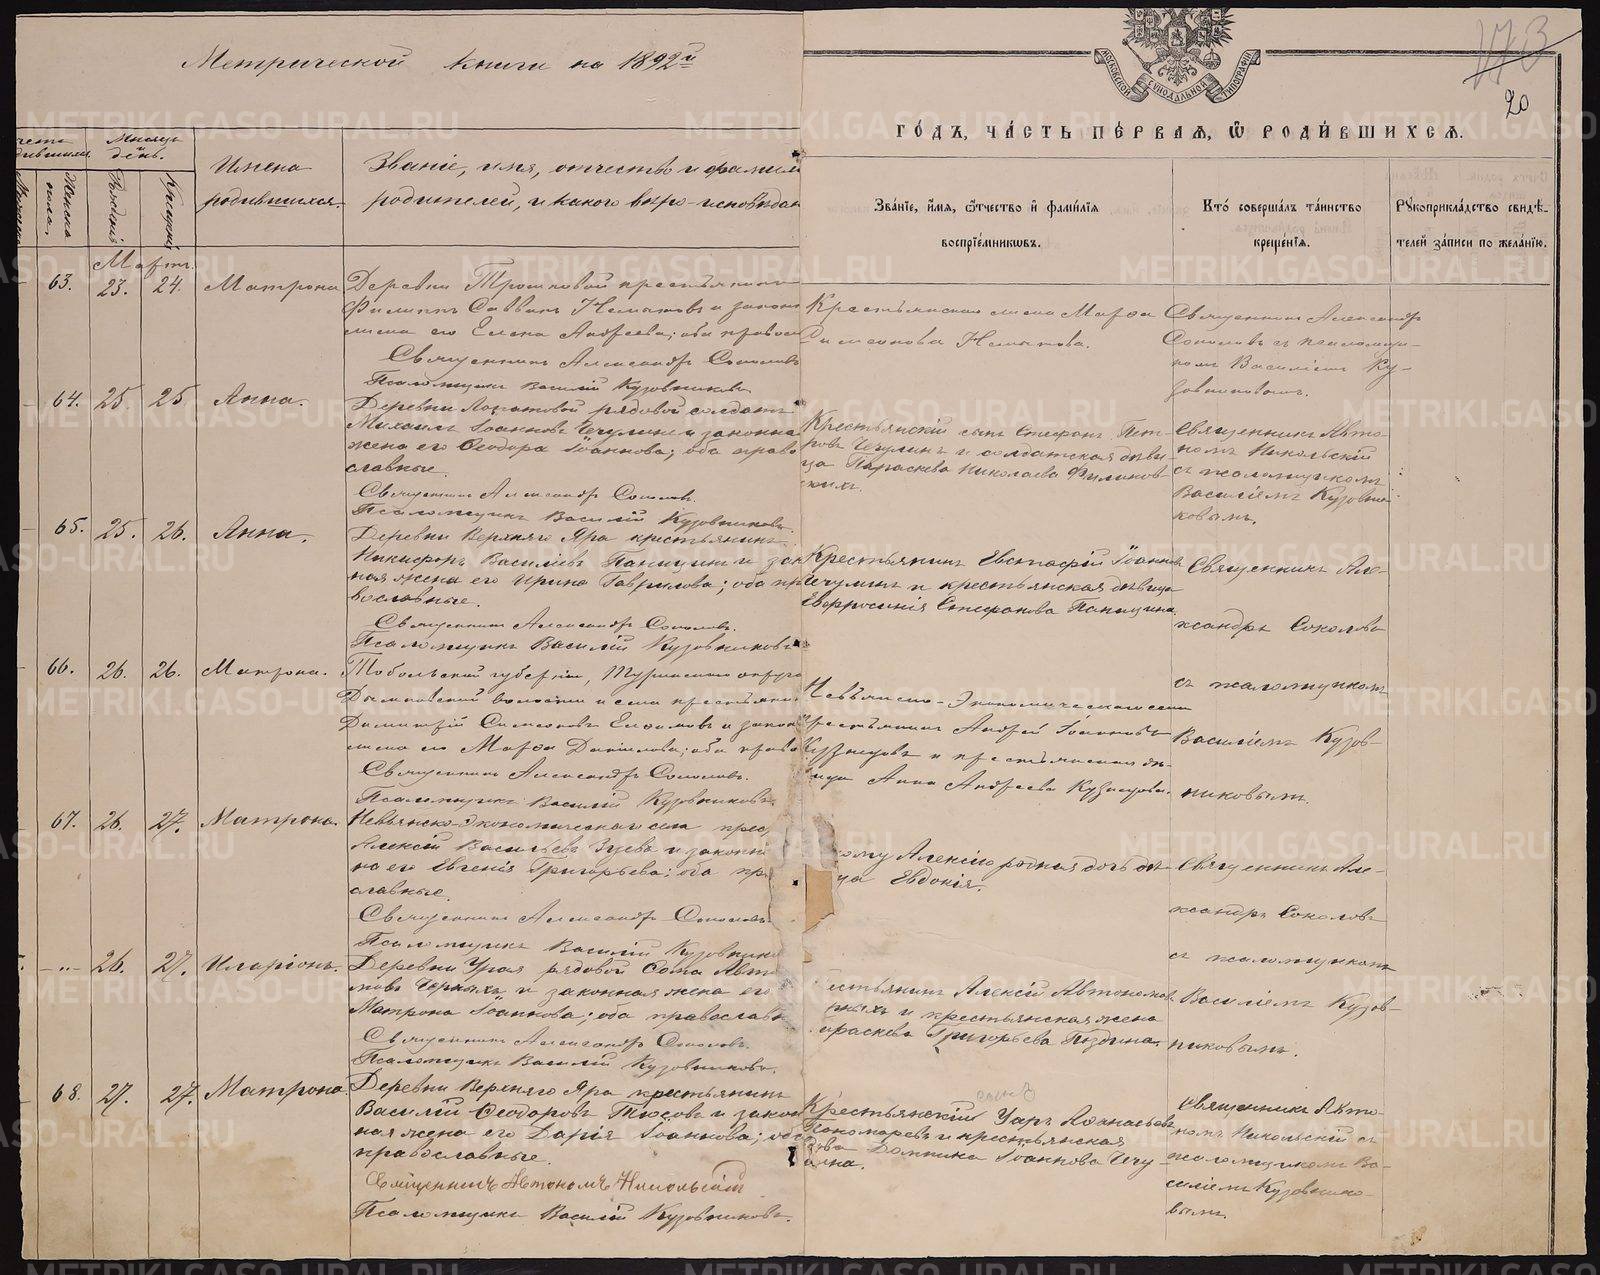 Метрической книги на 1892й
годъ, часть первая, ѡ родившихся.
173
20
Мѣсяцъ и день.
Женска пола.
Рожденія
Крещенія
Имена родившихся.
Званіе, имя, отчество и фамилія
родителей, и какого вѣро-исповѣдан
Званіе, имя, ѻтчество и фамилія
воспріемниковъ.
Кто совершалъ таинство
крещенія.
Рукоприкладство свидѣ-
телей записи по желанію.
Мартъ.
63. 23. 24. Матрона
Деревни Трошковой крестьянинъ
Филиппъ Саввинъ и законн
жена его Елена Андреева; оба правосл
Священникъ Александръ Соколовъ
Псаломщикъ Василій Кузовниковъ
Крестьянская жена Марѳа
Симеонова
Священникъ Александръ
Соколовъ съ псаломщи-
комъ Василіемъ Ку-
зовниковымъ.
64. 25. 25 Анна.
Деревни Лопатовой рядовой солдатъ
Михаилъ Іоанновъ Чечулинъ и законна
жена его Ѳеодора Іоаннова; оба право
славные.
Священникъ Александръ Соколовъ.
Псаломщикъ Василій Кузовниковъ.
Крестьянскій сынъ Стефанъ Пет-
ровъ Чечулинъ и солдатская дѣви-
ца Параскева Николаева Филинов-
скихъ.
Священникъ Авто-
номъ Никольскій
съ псаломщикомъ
Василіемъ Кузовни-
ковымъ.
65. 25. 26. Анна.
Деревни Верхняго Яра крестьянинъ
Никифоръ Василіевъ Паницинъ и зак
ная жена его Ирина Гаврилова; оба пра
вославные.
Священникъ Александръ Соколовъ.
Псаломщикъ Василій Кузовниковъ
Крестьянинъ Евстафій Іоаннов
Чечулинъ и крестьянская дѣвица
Евфросинія Стефанова Паницина.
Священникъ Але-
ксандръ Соколовъ
съ псаломщикомъ
Василіемъ Кузов-
никовымъ.
66. 26. 26. Матрона.
Тобольской губерніи, Туринскаго округа
волости и села крестьянинъ
Димитрій Симеоновъ и законн
жена его Марѳа Даніилова; оба право
Священникъ Александръ Соколовъ.
Псаломщикъ Василій Кузовниковъ
Невьянско-Экономическаго села
крестьянинъ Андрей Іоанновъ
Кузнецовъ и крестьянская дѣ-
вица Анна Андреева Кузнецова.
67. 26. 27. Матрона.
Невьянско-Экономическаго села крес
Алексій Васильевъ Зуевъ и законн
на его Евгенія Григорьева; оба пр
славные.
Священникъ Александръ Соколовъ
Псаломщикъ Василій Кузовнико
ому Алексію родная дочь дѣ-
ца Евдокія.
Священникъ Але-
ксандръ Соколовъ
съ псаломщикомъ
Василіемъ Кузов-
никовымъ.
-"- 26. 27. Иларіонъ.
Деревни рядовой Ѳома Авто
мовъ Черныхъ и законная жена его
Матрона Іоаннова; оба православн
Священникъ Александръ Соколовъ.
Псаломщикъ Василій Кузовниковъ.
естьянинъ Алексій Автономов
рныхъ и крестьянская жена
араскева Григорьева Поздина.
68. 27. 27. Матрона
Деревни Верхняго Яра крестьянинъ
Василій Ѳеодоровъ Тюсовъ и закон
ная жена его Дарія Іоаннова; оба
православные.
Священникъ Автономъ Никольскій
Псаломщикъ Василій Кузовниковъ.
сынъ
Крестьянскій Уаръ Аѳанасьевъ
Пономаревъ и крестьянская
вдова Домника Іоаннова Чечу-
лина.
Священникъ Авто-
номъ Никольскій съ
псаломщикомъ Ва-
силіемъ Кузовнико-
вымъ.
METRIKI.GASO-URAL.RU